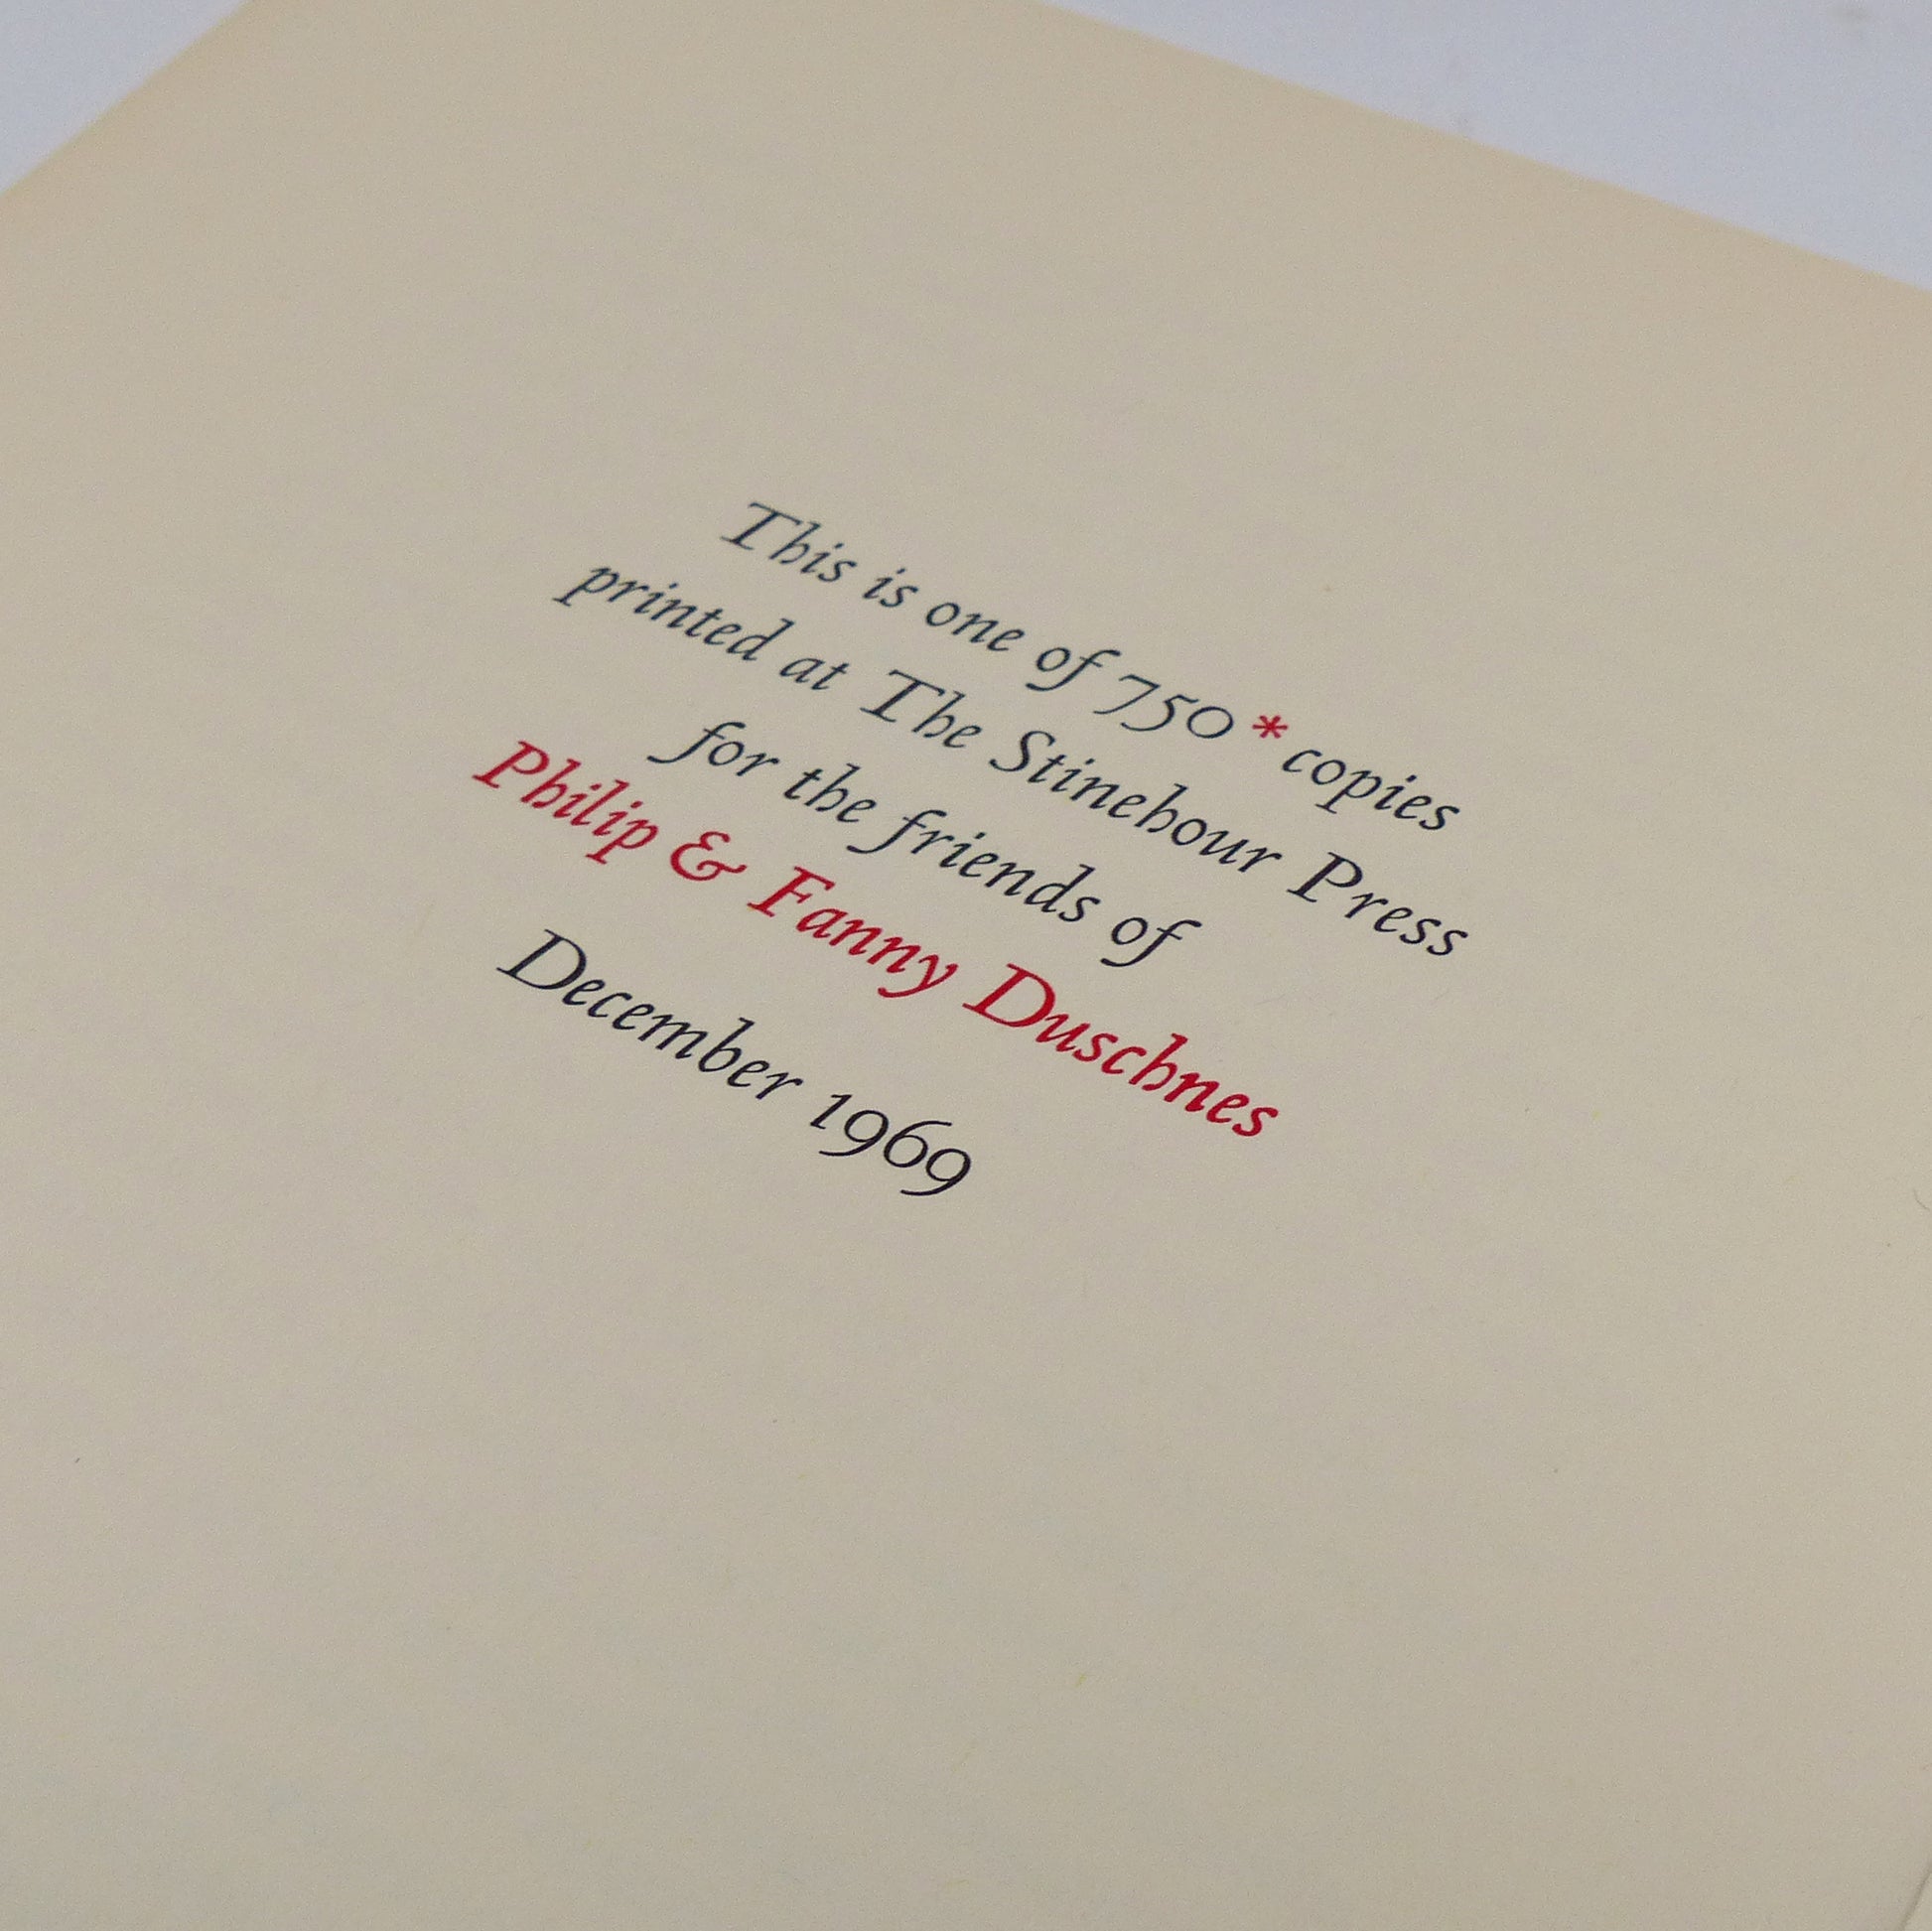 This is one of 750* copies
printed at The Stinehour Press
for the friends of
Philip & Fanny Duschnes
December 1969